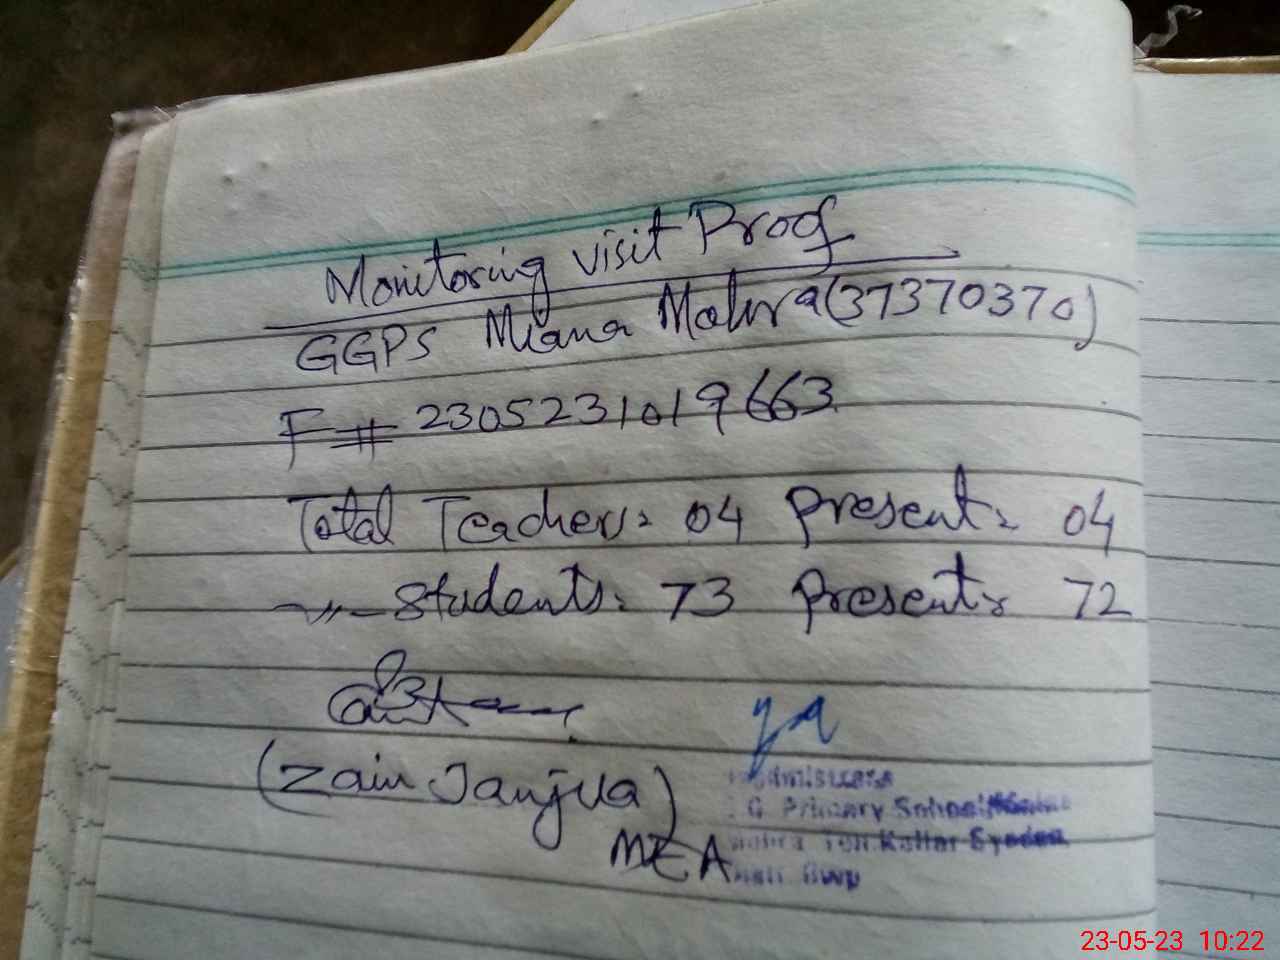 Monitoring visit Proof
GGPS Miana Mohra (37370370)
F# 2305231019663
Total Teachers: 04 Present: 04
-〃- Students: 73 Present: 72
(Zain Janjua)
MEA
G. Primary School
Teh. Kallar Syedan
23-05-23 10:22